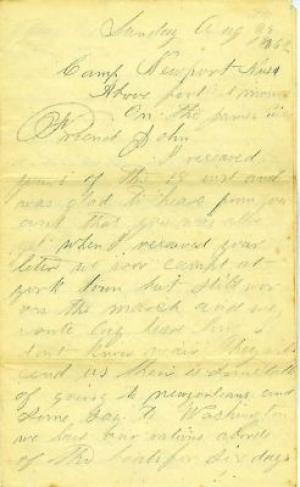 Sunday Aug
1862
Camp Newport News
Above fort
On the James
Friend John
I receved
yours of the 18 inst and
was glad to hear from you
and that you was all
when I receved your
letter we was campt at
york town but still
on the march and we
dont know
and us their is some talk
of going to neworleans and
some say to Washington
we have our rations aborde
of the boats for six days